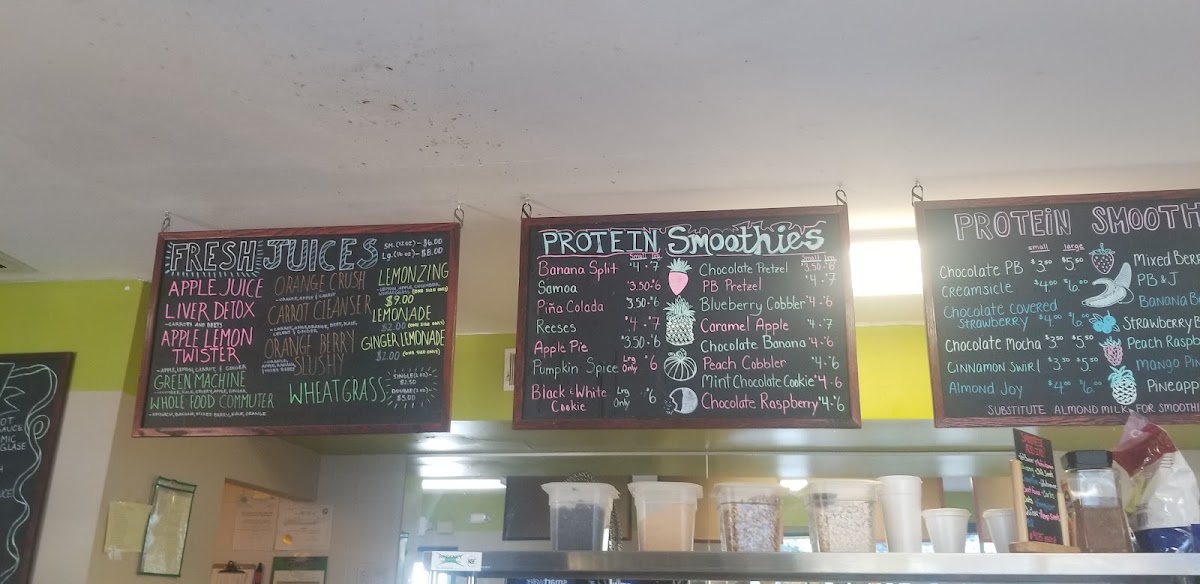 OT
SAUCE
MIC
GLASE
FRESH JUICES
SM. (12 oz) - $6.00
Lg. (16 oz) - $8.00
APPLE JUICE
LIVER DETOX
-CARROTS AND BEETS
APPLE LEMON
TWISTER
-APPLE, LEMON, CARROT, & GINGER
GREEN MACHINE
WHOLE FOOD COMMUTER
ORANGE CRUSH
-ORANGE, APPLE & CARROT
CARROT CLEANSER
ORANGE BERRY
SLUSHY
WHEATGRASS
LEMONZING
$9.00
LEMONADE
$2.00 (ONE SIZE ONLY)
GINGER LEMONADE
$2.00 (ONE SIZE ONLY)
SINGLE (1 oz.)-
DOUBLE (2 oz)-
$5.00
PROTEIN Smoothies
Small Lrg
Banana Split $4 - 7
Samoa $3.50 - 6
Piña Colada 3.50 - 6
Reeses $4 - 7
Apple Pie $3.50 - 6
Pumpkin Spice Lrg Only $6
Black & White
Cookie Lrg Only $6
Small Lrg
Chocolate Pretzel $3.50 - 6
PB Pretzel $4 - 7
Blueberry Cobbler $4 - 6
Caramel Apple $4 - 7
Chocolate Banana $4 - 6
Peach Cobbler $4 - 6
Mint Chocolate Cookie $4 - 6
Chocolate Raspberry $4 - 6
PROTEIN SMOOTH
small large
Chocolate PB $3.50 $5.50
Creamsicle $4.00 $6.00
Chocolate covered
strawberry $4.00 $6.00
Chocolate Mocha $3.50 $5.50
Cinnamon Swirl $3.50 $5.50
Almond Joy $4.00 $6.00
Mixed Berr
PB & J
Banana Be
Strawberry B
Peach Raspb
mango Pin
Pineapp
SUBSTITUTE ALMOND MILK FOR SMOOTHI